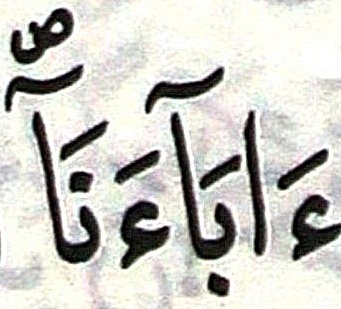 ءَابَآءَنَآۖ